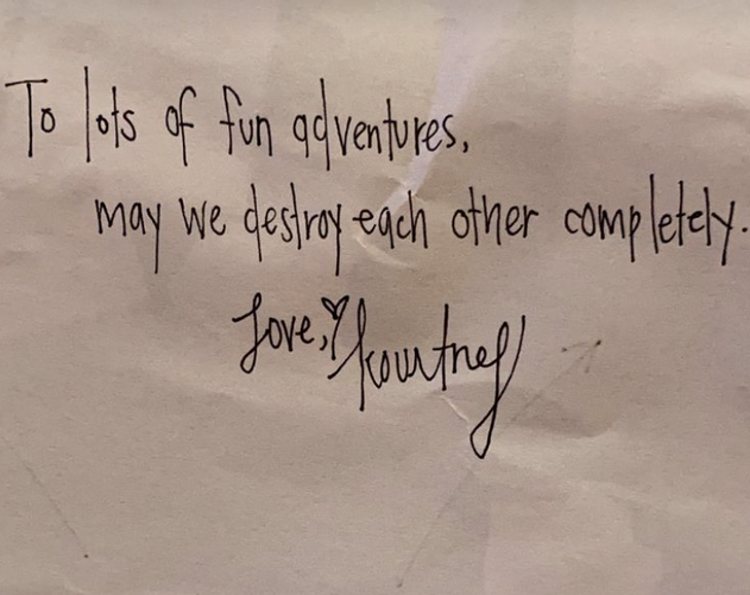 To lots of fun adventures,
may we destroy each other completely.
Love, Kourtney